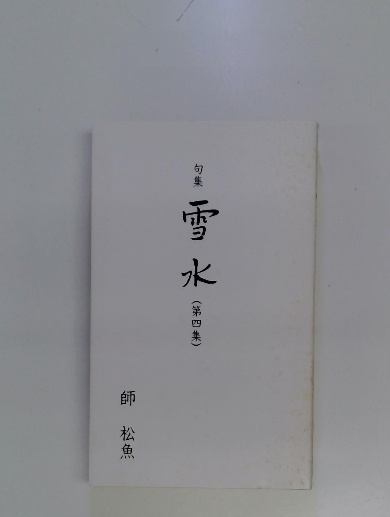 句集
雪水
（第四集）
師 松魚